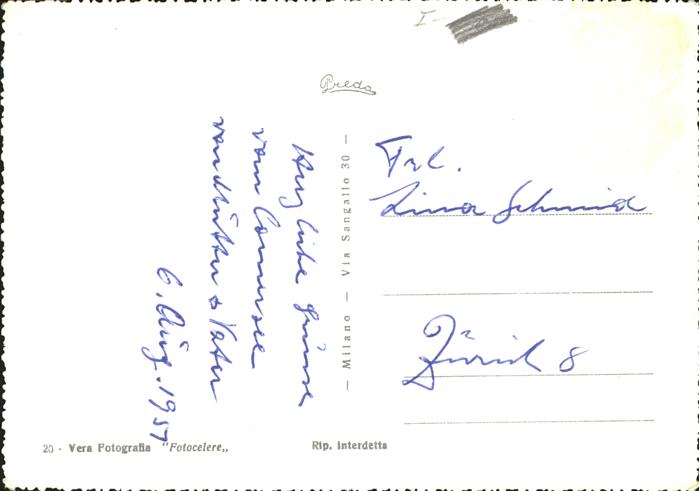 I-
Preda
Herzliche Grüsse
vom Comersee
von Mutter & Vater
6. Aug. 1957
— Milano — Via Sangallo 30 —
Frl.
Lina Schmid
Zürich 8
20 - Vera Fotografia "Fotocelere„
Rip. Interdetta